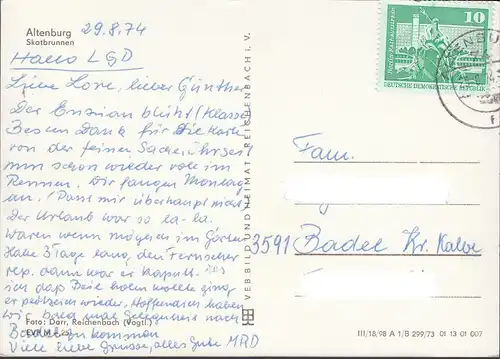 Altenburg
Skatbrunnen
29.8.74
Hallo LGD
Liebe Lore, lieber Günther
Der Enzian blüht! Klasse
Besten Dank für die Karte
von der feiner Sache. Ihr seit
nun schon wieder voll im
Rennen. Wir fangen Montag
an. Passt mir überhaupt nicht
Der Urlaub war so la-la.
Waren wenn möglich im Garten
Habe 3 Tage lang den Fernseher
rep. dann war er kaputt. Als
ich das Beil holen wollte ging
er plötzlich wieder. Hoffentlich haben
wir bald mal Gelegenheit nach
Badel zu kommen
Viele liebe Grüsse, alles Gute MRD
Foto: Darr, Reichenbach (Vogtl.)
EVP M 0,25
VEB BILD UND HEIMAT REICHENBACH I. V.
10
DEUTSCHE DEMOKRATISCHE REPUBLIK
Fam.
3591 Badel Kr. Kalbe
III/18/98 A 1/B 299/73 01 13 01 007